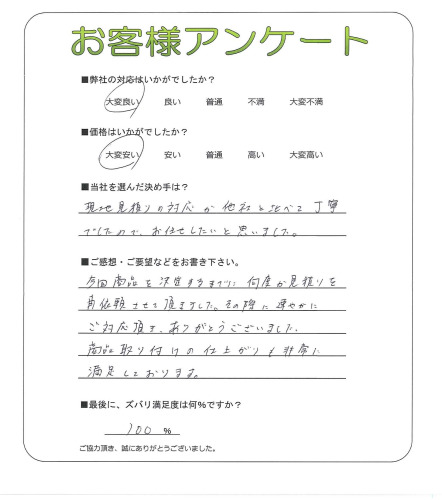 お客様アンケート
■弊社の対応はいかがでしたか？
大変良い 良い 普通 不満 大変不満
■価格はいかがでしたか？
大変安い 安い 普通 高い 大変高い
■当社を選んだ決め手は？
現地見積りの対応が他社と比べて丁寧
でしたので、お任せしたいと思いました。
■ご感想・ご要望などをお書き下さい。
今回商品を決定するまでに何度か見積りを
再依頼させて頂きました。その際に速やかに
ご対応頂き、ありがとうございました。
商品取り付けの仕上がりも非常に
満足しております。
■最後に、ズバリ満足度は何%ですか？
100 %
ご協力頂き、誠にありがとうございました。